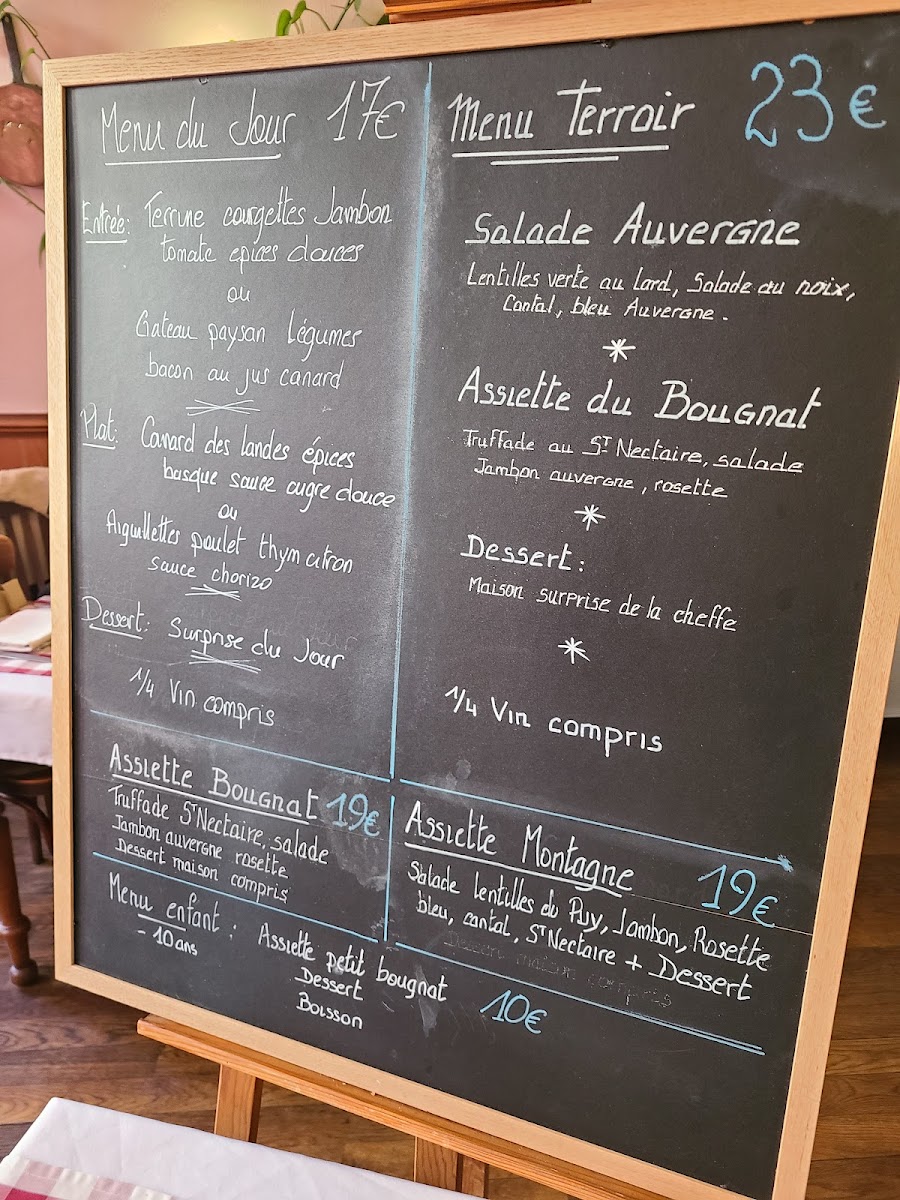 Menu du Jour 17€
Entrée: Terrine courgettes Jambon
tomate epices douces
ou
Gateau paysan Légumes
bacon au jus canard
Plat: Canard des landes épices
basque sauce aigre douce
ou
Aiguillettes poulet thym citron
sauce chorizo
Dessert: Surprise du Jour
1/4 Vin compris
Menu Terroir 23€
Salade Auvergne
Lentilles verte au lard, Salade au noix,
Cantal, bleu Auvergne.
Assiette du Bougnat
Truffade au St Nectaire, salade
Jambon auvergne, rosette
Dessert:
Maison surprise de la cheffe
1/4 Vin compris
Assiette Bougnat 19€
Truffade St Nectaire, salade
Jambon auvergne rosette
Dessert maison compris
Assiette Montagne 19€
Salade lentilles du Puy, Jambon, Rosette
bleu, cantal, St Nectaire + Dessert
Menu enfant : Assiette petit bougnat
- 10 ans
Dessert
Boisson
10€